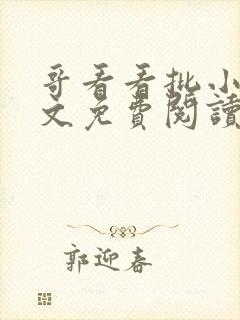 哥看看批小
文免費閱讀
郭迎春